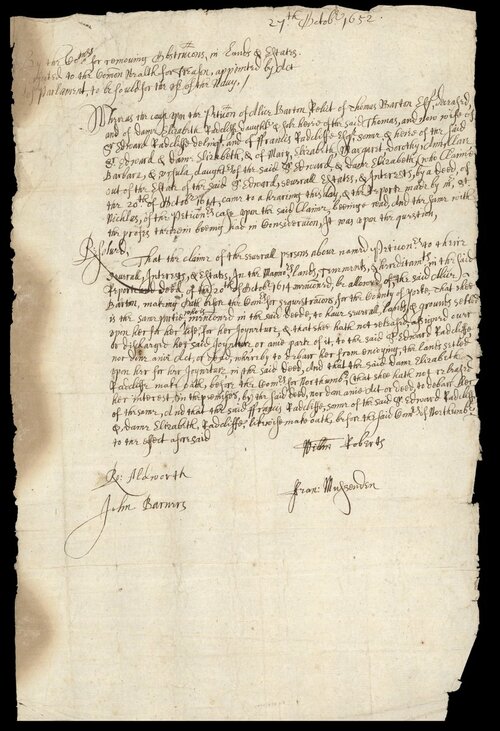 27th Octobr 1652.
By the Comrs for removing Obstruccons, in Lands & Estates
to the Comon Wealth for Treason, appointed by Act
of Parliament, to be sould for the use of the Navy./
Whereas the case upon the Peticon of Alice Barton Relict of Thomas Barton Esqr, deceased,
and of dame Elizabeth Radcliffe daughter & sole heire of the said Thomas, and now wife of
Sr Edward Radcliffe and of Ffrancis Radcliffe Esqr, sonne & heire of the said
Sr Edward & dame Elizabeth, & of Mary, Elizabeth, Margaret, Dorothy, Ann, Clare
Barbara, & Ursula, daughters of the said Sr Edward & dame Elizabeth, who Claime
out of the Estate of the said Sr Edward, severall Estates, & Interests, by a deed, of
the 20th of Octobr 1614, came to a hearing this day, & the Reporte made by mr
Nicklas, of the Peticonrs case upon the said Claime, beeinge read, and the same with
the profes thereon beeing had in Consideracon, It was upon the question,
Resolved, That the claime of the severall persons above named Peticonrs to their
severall, Interests, & Estats, In the Mannors, lands, tenements, & hereditamts in the said
Reporte and deed of the 20th of Octobr 1614 mencioned, be allowed, of the said Alice
Barton, making Oath before the Comrs for sequestracons, for the County of Yorke, that shee
is the same ptie mencioned in the said deede, to have severall lands & grounds setled
upon her for her life, for her Joynture, & that shee hath not released, assigned over
or discharged her said Joynture or anie parte of it, to the said Sr Edward Radcliffe
nor don anie Act, or deed, whereby to debarr her from enioying, the lands setled
upon her for her Joynture in the said deed, And that the said dame Elizabeth
Radcliffe make oath, before the Comrs for Northumbr, that shee hath not released
her interest in the premisses, by the said deed, nor don anie Act or deed, to debarr her
of the same, And that the said ffrancis Radcliffe, sonne of the said Sr Edward Radcliffe
& dame Elizabeth Radcliffe, likewise make oath, before the said Comrs of Northumbr
to the effect aforesaid
Willm Roberts
Ri: Aldworth
Fran: Mussenden
John Barners